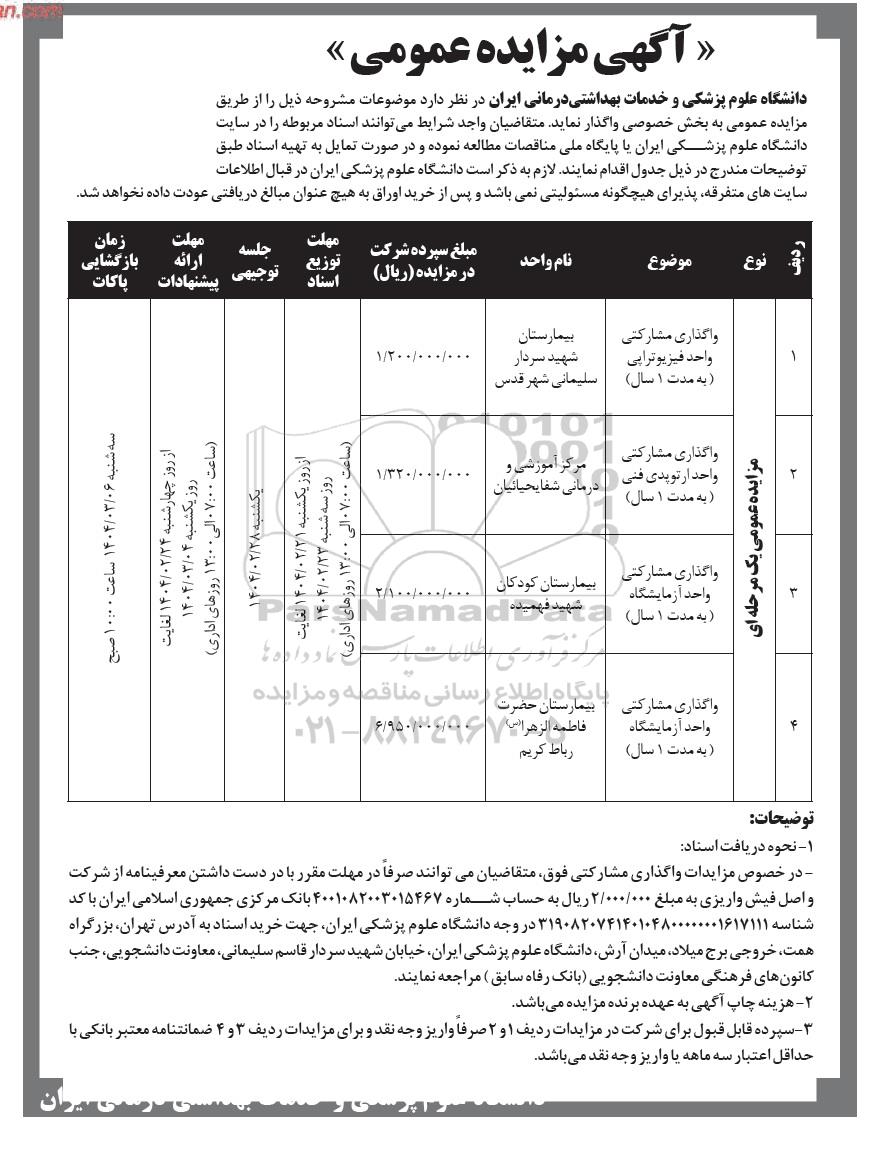 an.com
« آگهی مزایده عمومی »
دانشگاه علوم پزشکی و خدمات بهداشتی‌درمانی ایران در نظر دارد موضوعات مشروحه ذیل را از طریق
مزایده عمومی به بخش خصوصی واگذار نماید. متقاضیان واجد شرایط می‌توانند اسناد مربوطه را در سایت
دانشگاه علوم پزشکی ایران یا پایگاه ملی مناقصات مطالعه نموده و در صورت تمایل به تهیه اسناد طبق
توضیحات مندرج در ذیل جدول اقدام نمایند. لازم به ذکر است دانشگاه علوم پزشکی ایران در قبال اطلاعات
سایت های متفرقه، پذیرای هیچگونه مسئولیتی نمی باشد و پس از خرید اوراق به هیچ عنوان مبالغ دریافتی عودت داده نخواهد شد.
ردیف
نوع
موضوع
نام واحد
مبلغ سپرده شرکت
در مزایده (ریال)
مهلت
توزیع
اسناد
جلسه
توجیهی
مهلت
ارائه
پیشنهادات
زمان
بازگشایی
پاکات
مزایده عمومی یک مرحله ای
۱
واگذاری مشارکتی
واحد فیزیوتراپی
(به مدت ۱ سال)
بیمارستان
شهید سردار
سلیمانی شهر قدس
۱/۲۰۰/۰۰۰/۰۰۰
۲
واگذاری مشارکتی
واحد ارتوپدی فنی
(به مدت ۱ سال)
مرکز آموزشی و
درمانی شفایحیائیان
۱/۳۲۰/۰۰۰/۰۰۰
۳
واگذاری مشارکتی
واحد آزمایشگاه
(به مدت ۱ سال)
بیمارستان کودکان
شهید فهمیده
۲/۱۰۰/۰۰۰/۰۰۰
۴
واگذاری مشارکتی
واحد آزمایشگاه
(به مدت ۱ سال)
بیمارستان حضرت
فاطمه الزهرا(س)
رباط کریم
۶/۹۵۰/۰۰۰/۰۰۰
از روز یکشنبه ۱۴۰۴/۰۲/۲۱ لغایت
روز سه شنبه ۱۴۰۴/۰۲/۲۳
(ساعت ۰۷:۰۰ الی ۱۳:۰۰ روزهای اداری)
یکشنبه ۱۴۰۴/۰۲/۲۸
از روز چهارشنبه ۱۴۰۴/۰۲/۲۴ لغایت
روز یکشنبه ۱۴۰۴/۰۳/۰۴
(ساعت ۰۷:۰۰ الی ۱۳:۰۰ روزهای اداری)
سه شنبه ۱۴۰۴/۰۳/۰۶ ساعت ۱۰:۰۰ صبح
ParsNamadData
مرکز فرآوری اطلاعات پارس نماد داده ها
پایگاه اطلاع رسانی مناقصه و مزایده
۰۲۱-۸۸۳۴۹۶۷۰-۵
توضیحات:
۱- نحوه دریافت اسناد:
- در خصوص مزایدات واگذاری مشارکتی فوق، متقاضیان می توانند صرفاً در مهلت مقرر با در دست داشتن معرفینامه از شرکت
و اصل فیش واریزی به مبلغ ۲/۰۰۰/۰۰۰ ریال به حساب شماره ۴۰۰۱۰۸۲۰۰۳۰۱۵۴۶۷ بانک مرکزی جمهوری اسلامی ایران با کد
شناسه ۳۱۹۰۸۲۰۷۴۱۴۰۱۰۴۸۰۰۰۰۰۰۰۱۶۱۷۱۱۱ در وجه دانشگاه علوم پزشکی ایران، جهت خرید اسناد به آدرس تهران، بزرگراه
همت، خروجی برج میلاد، میدان آرش، دانشگاه علوم پزشکی ایران، خیابان شهید سردار قاسم سلیمانی، معاونت دانشجویی، جنب
کانون‌های فرهنگی معاونت دانشجویی (بانک رفاه سابق) مراجعه نمایند.
۲- هزینه چاپ آگهی به عهده برنده مزایده می‌باشد.
۳-سپرده قابل قبول برای شرکت در مزایدات ردیف ۱ و ۲ صرفاً واریز وجه نقد و برای مزایدات ردیف ۳ و ۴ ضمانتنامه معتبر بانکی با
حداقل اعتبار سه ماهه یا واریز وجه نقد می‌باشد.
دانشگاه علوم پزشکی و خدمات بهداشتی درمانی ایران